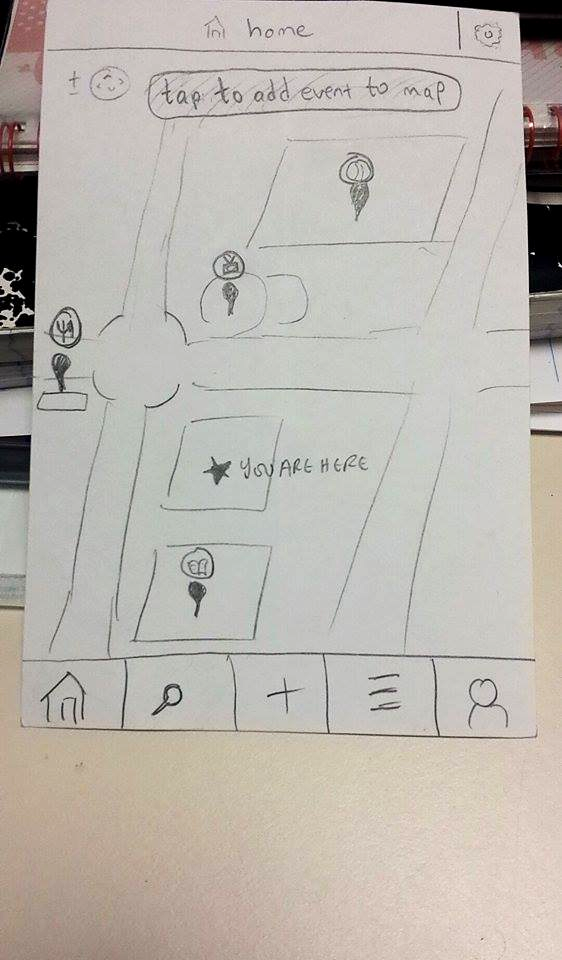 home
tap to add event to map
YOU ARE HERE